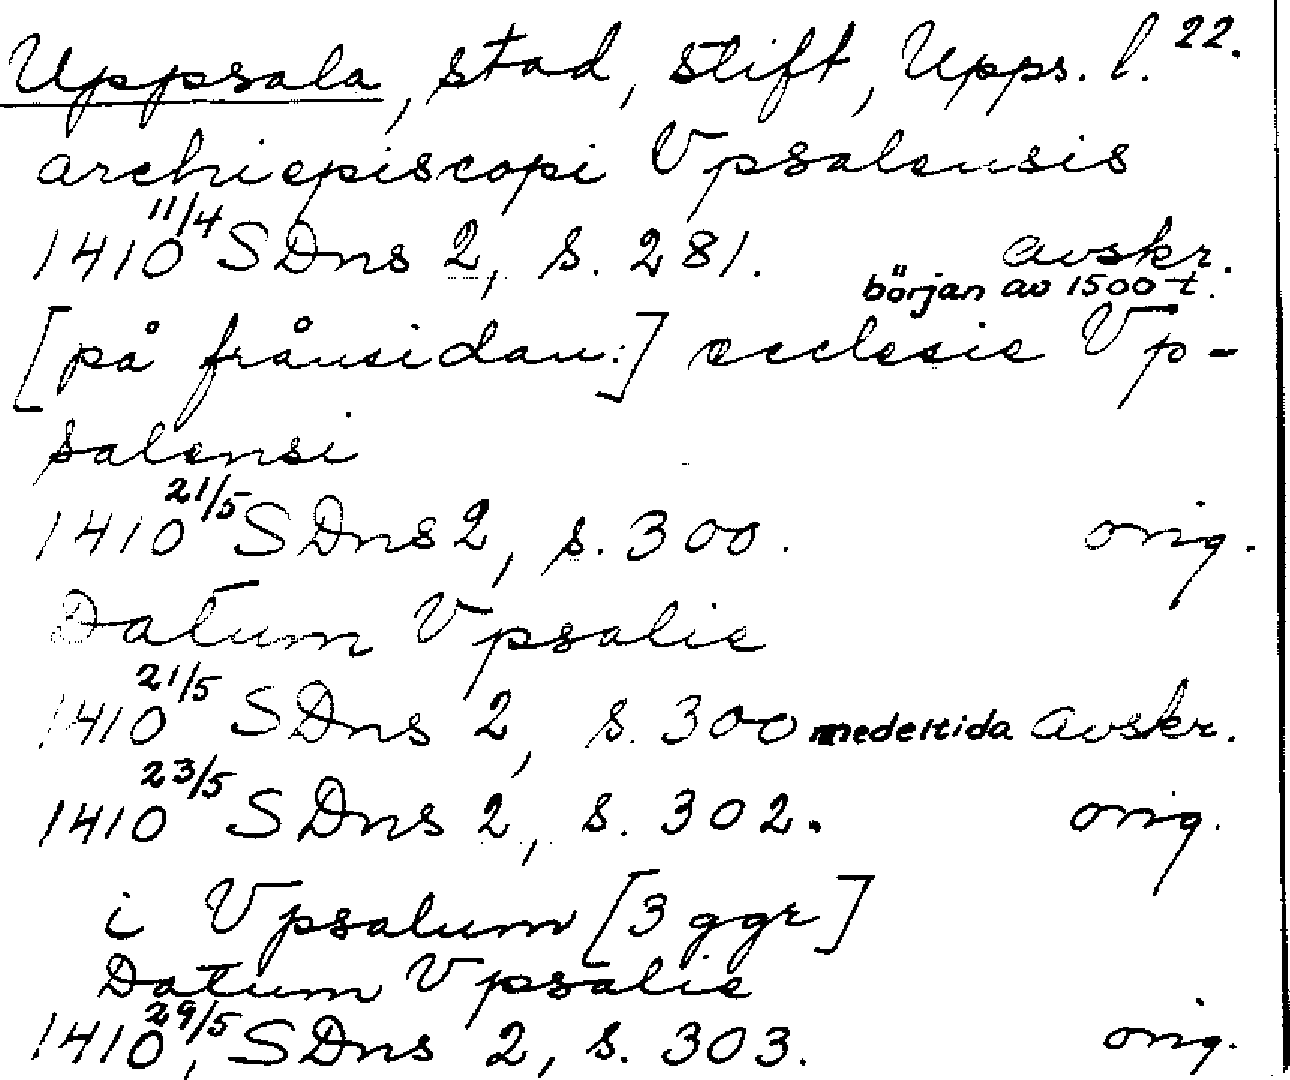 Uppsala, stad, stift, Upps. l. 22.
archiepiscopi Vpsalensis
1410 11/4 SDns 2, s. 281. avskr.
början av 1500-t.
[på frånsidan:] ecclesie Vp-
salensi
1410 21/5 SDns 2, s. 300. orig.
Datum Vpsalie
1410 21/5 SDns 2, s. 300 medeltida avskr.
1410 23/5 SDns 2, s. 302. orig.
i Vpsalum [3 ggr]
Datum Vpsalie
1410 29/5, SDns 2, s. 303. orig.